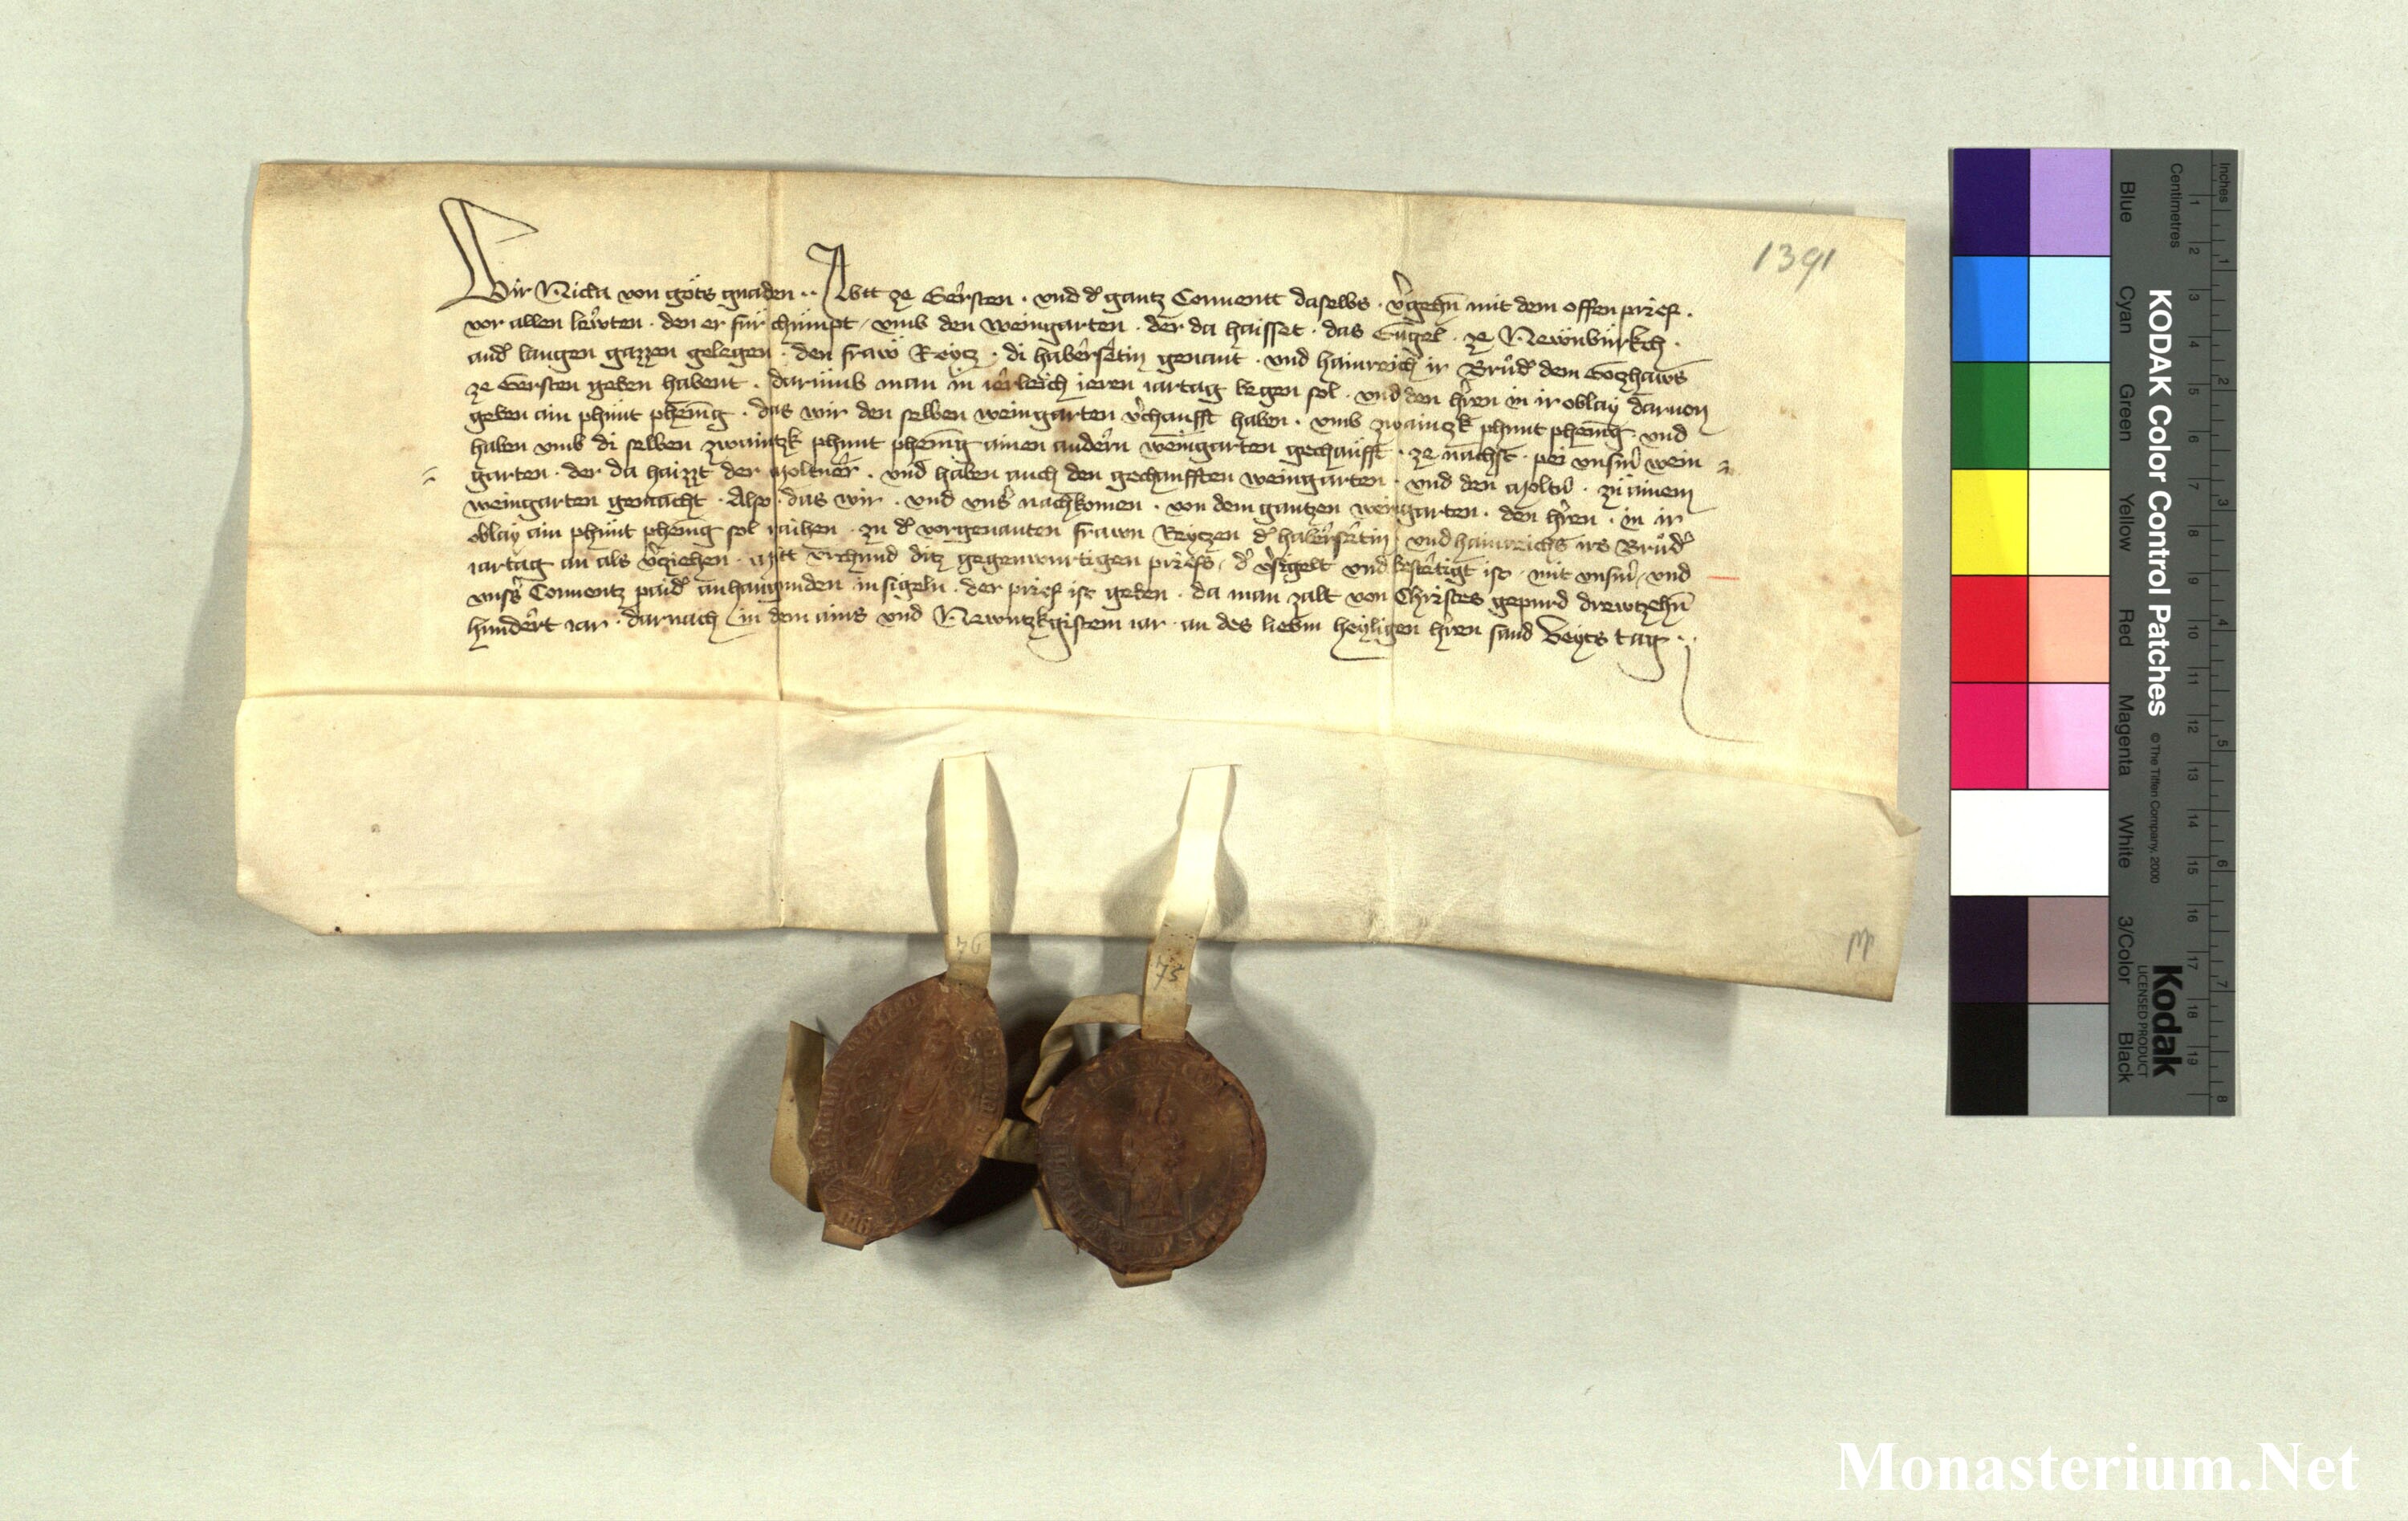 1391
Wir Nicla von gots gnaden ·· Abtt ze Gersten · vnd d' gantz Conuentt daselbs · v'gehn̄ mit dem offen prief ·
vor allen lewten · den er für chümpt / vmb den weingarten · der da haisset · das Engel · ze Newnbürkch ·
and' langen gazzen gelegen · den fraw Reycz · di haberserin genant · vnd hainreich ir Brůd' dem Gotzhaws
ze Gersten geben habent · darümb man in ierleich ieren iartag begen sol · vnd den h'ren in ir oblay daruon
geben ain phünt phēnīg · das wir den selben weingarten v'chaufft haben · vmb zwaintzk phunt phēnīg · vnd
haben vmb di selben zwaintzk phunt phēnīg ainen andern weingarten gechaufft · ze nachst · pei vnserm wein
garten · der da haizzt der Moltner · vnd haben auch den gechaufften weingarten · vnd den Moltn' · zu ainem
weingarten gemacht · Also · das wir · vnd vns' nachkomen · von dem gantzen weingarten · den h'ren · in ir
oblay ain phünt phenīg sol raihen · zu d' vorgenanten frawn Reyczen d' haberserin · vnd hainreichs irs Brůd'
iartag an als v'ziehen · Mitt vrchund ditz gegenwurtigen priefs / d' v'sigelt vnd bestetigt ist · mit vnserm / vnd
vnsers Conuentz paid' anhangunden insigeln · der prief ist geben · da man zalt von Christes gepurd drewtzehn̄
hundert iar · darnach in dem ains vnd Newntzkgistem iar · an des liebm heyligen h'ren sand Veyts tag ··
76
73
Inches
Centimetres
KODAK Color Control Patches
© The Tiffen Company, 2000
Kodak
LICENSED PRODUCT
Blue
Cyan
Green
Yellow
Red
Magenta
White
3/Color
Black
1 2 3 4 5 6 7 8 9 10 11 12 13 14 15 16 17 18 19
1 2 3 4 5 6 7 8
Monasterium.Net